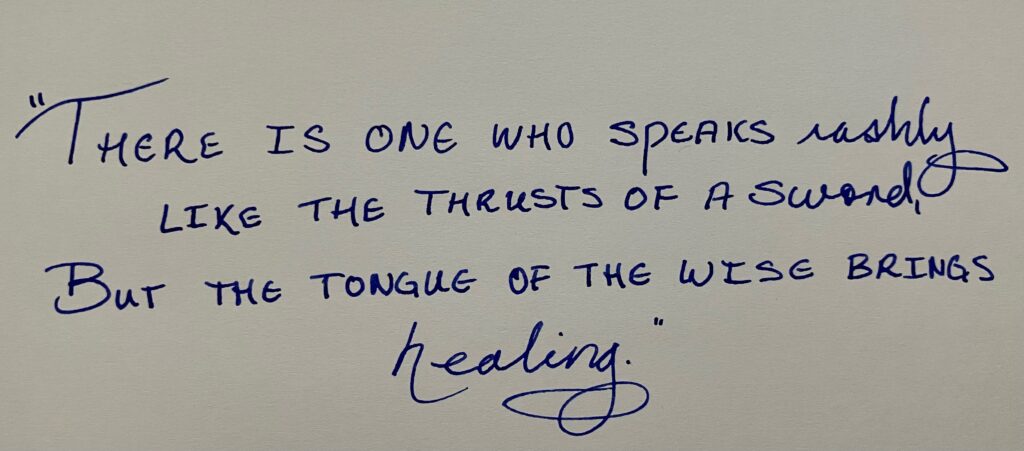 "THERE IS ONE WHO SPEAKS rashly
LIKE THE THRUSTS OF A Sword,
BUT THE TONGUE OF THE WISE BRINGS
healing."